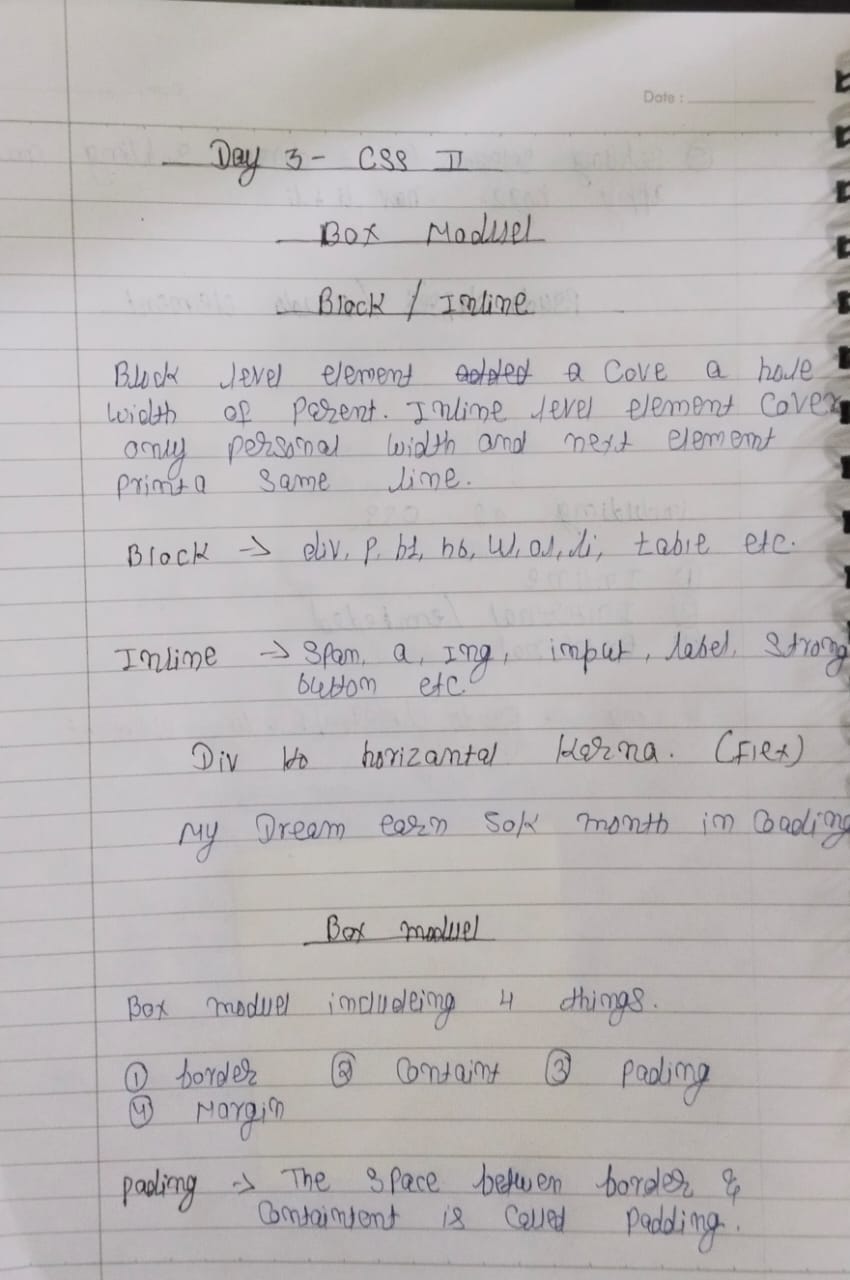 Date :
Day 3 - CSS II
Box Moduel
Block / Inline
Block level element a Cove a hole
width of Parent. Inline level element Cover
only personal width and next element
print a same line.
Block -> div, P, h1, h6, ul, ol, li, table etc.
Inline -> Span, a, Img, input, label, Strong
button etc.
Div ko horizantal Karna. (Flex)
My Dream earn 50K month in Coading
Box moduel
Box moduel includeing 4 things.
① border ② Containt ③ Pading
④ Margin
Pading -> The Space betwen border &
Containtent is Called Padding.